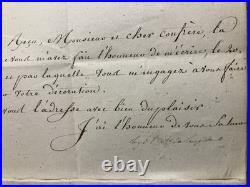 Reçu, Monsieur et cher confrère, la
vous m'avez fait l'honneur de m'écrire, le
par laquelle vous m'engagez à vous faire
votre décoration.
l'adresse avec bien du plaisir
J'ai l'honneur de vous saluer